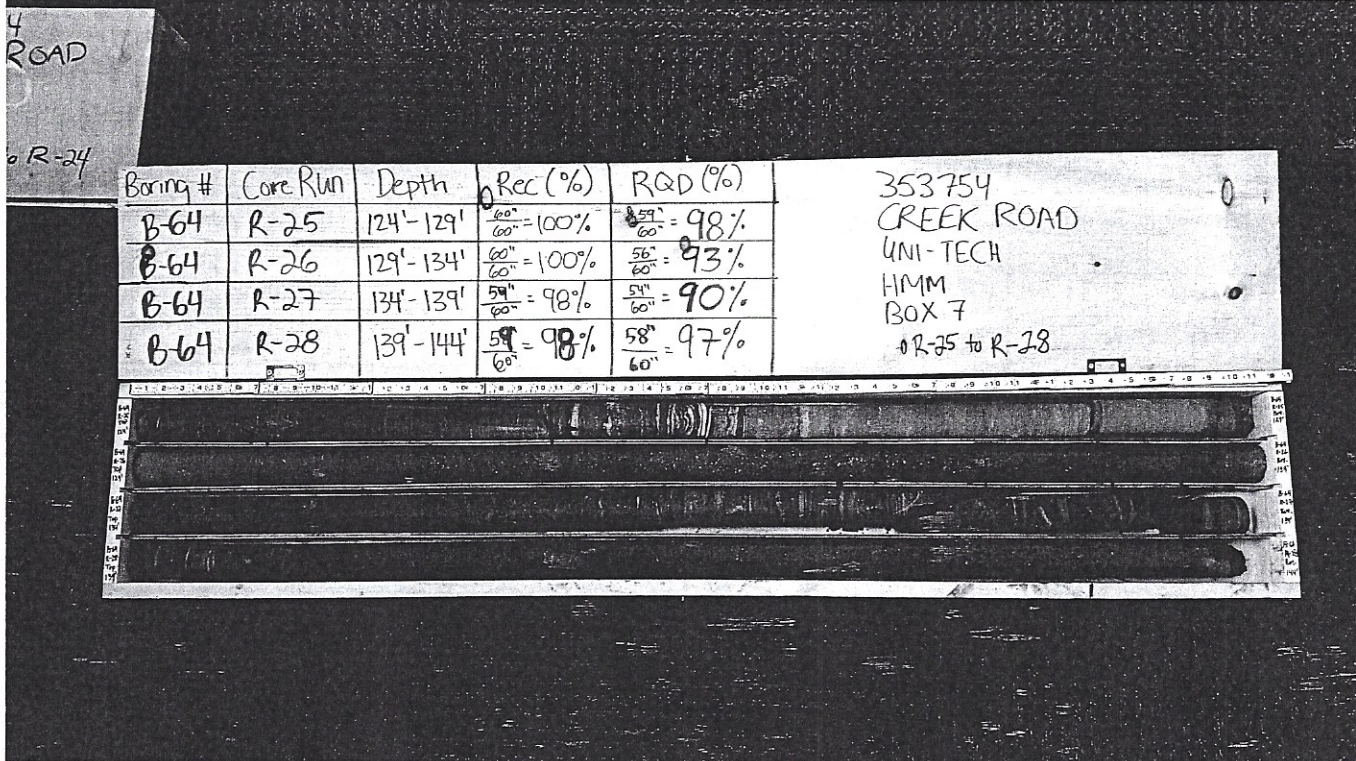 4
ROAD
R-24
Boring # Core Run Depth Rec (%) RQD (%)
B-64 R-25 124'-129' 60"/60" = 100% 59"/60" = 98%
B-64 R-26 129'-134' 60"/60" = 100% 56"/60" = 93%
B-64 R-27 134'-139' 59"/60" = 98% 54"/60" = 90%
B-64 R-28 139'-144' 59"/60" = 98% 58"/60" = 97%
353754
CREEK ROAD
UNI-TECH
HMM
BOX 7
R-25 to R-28